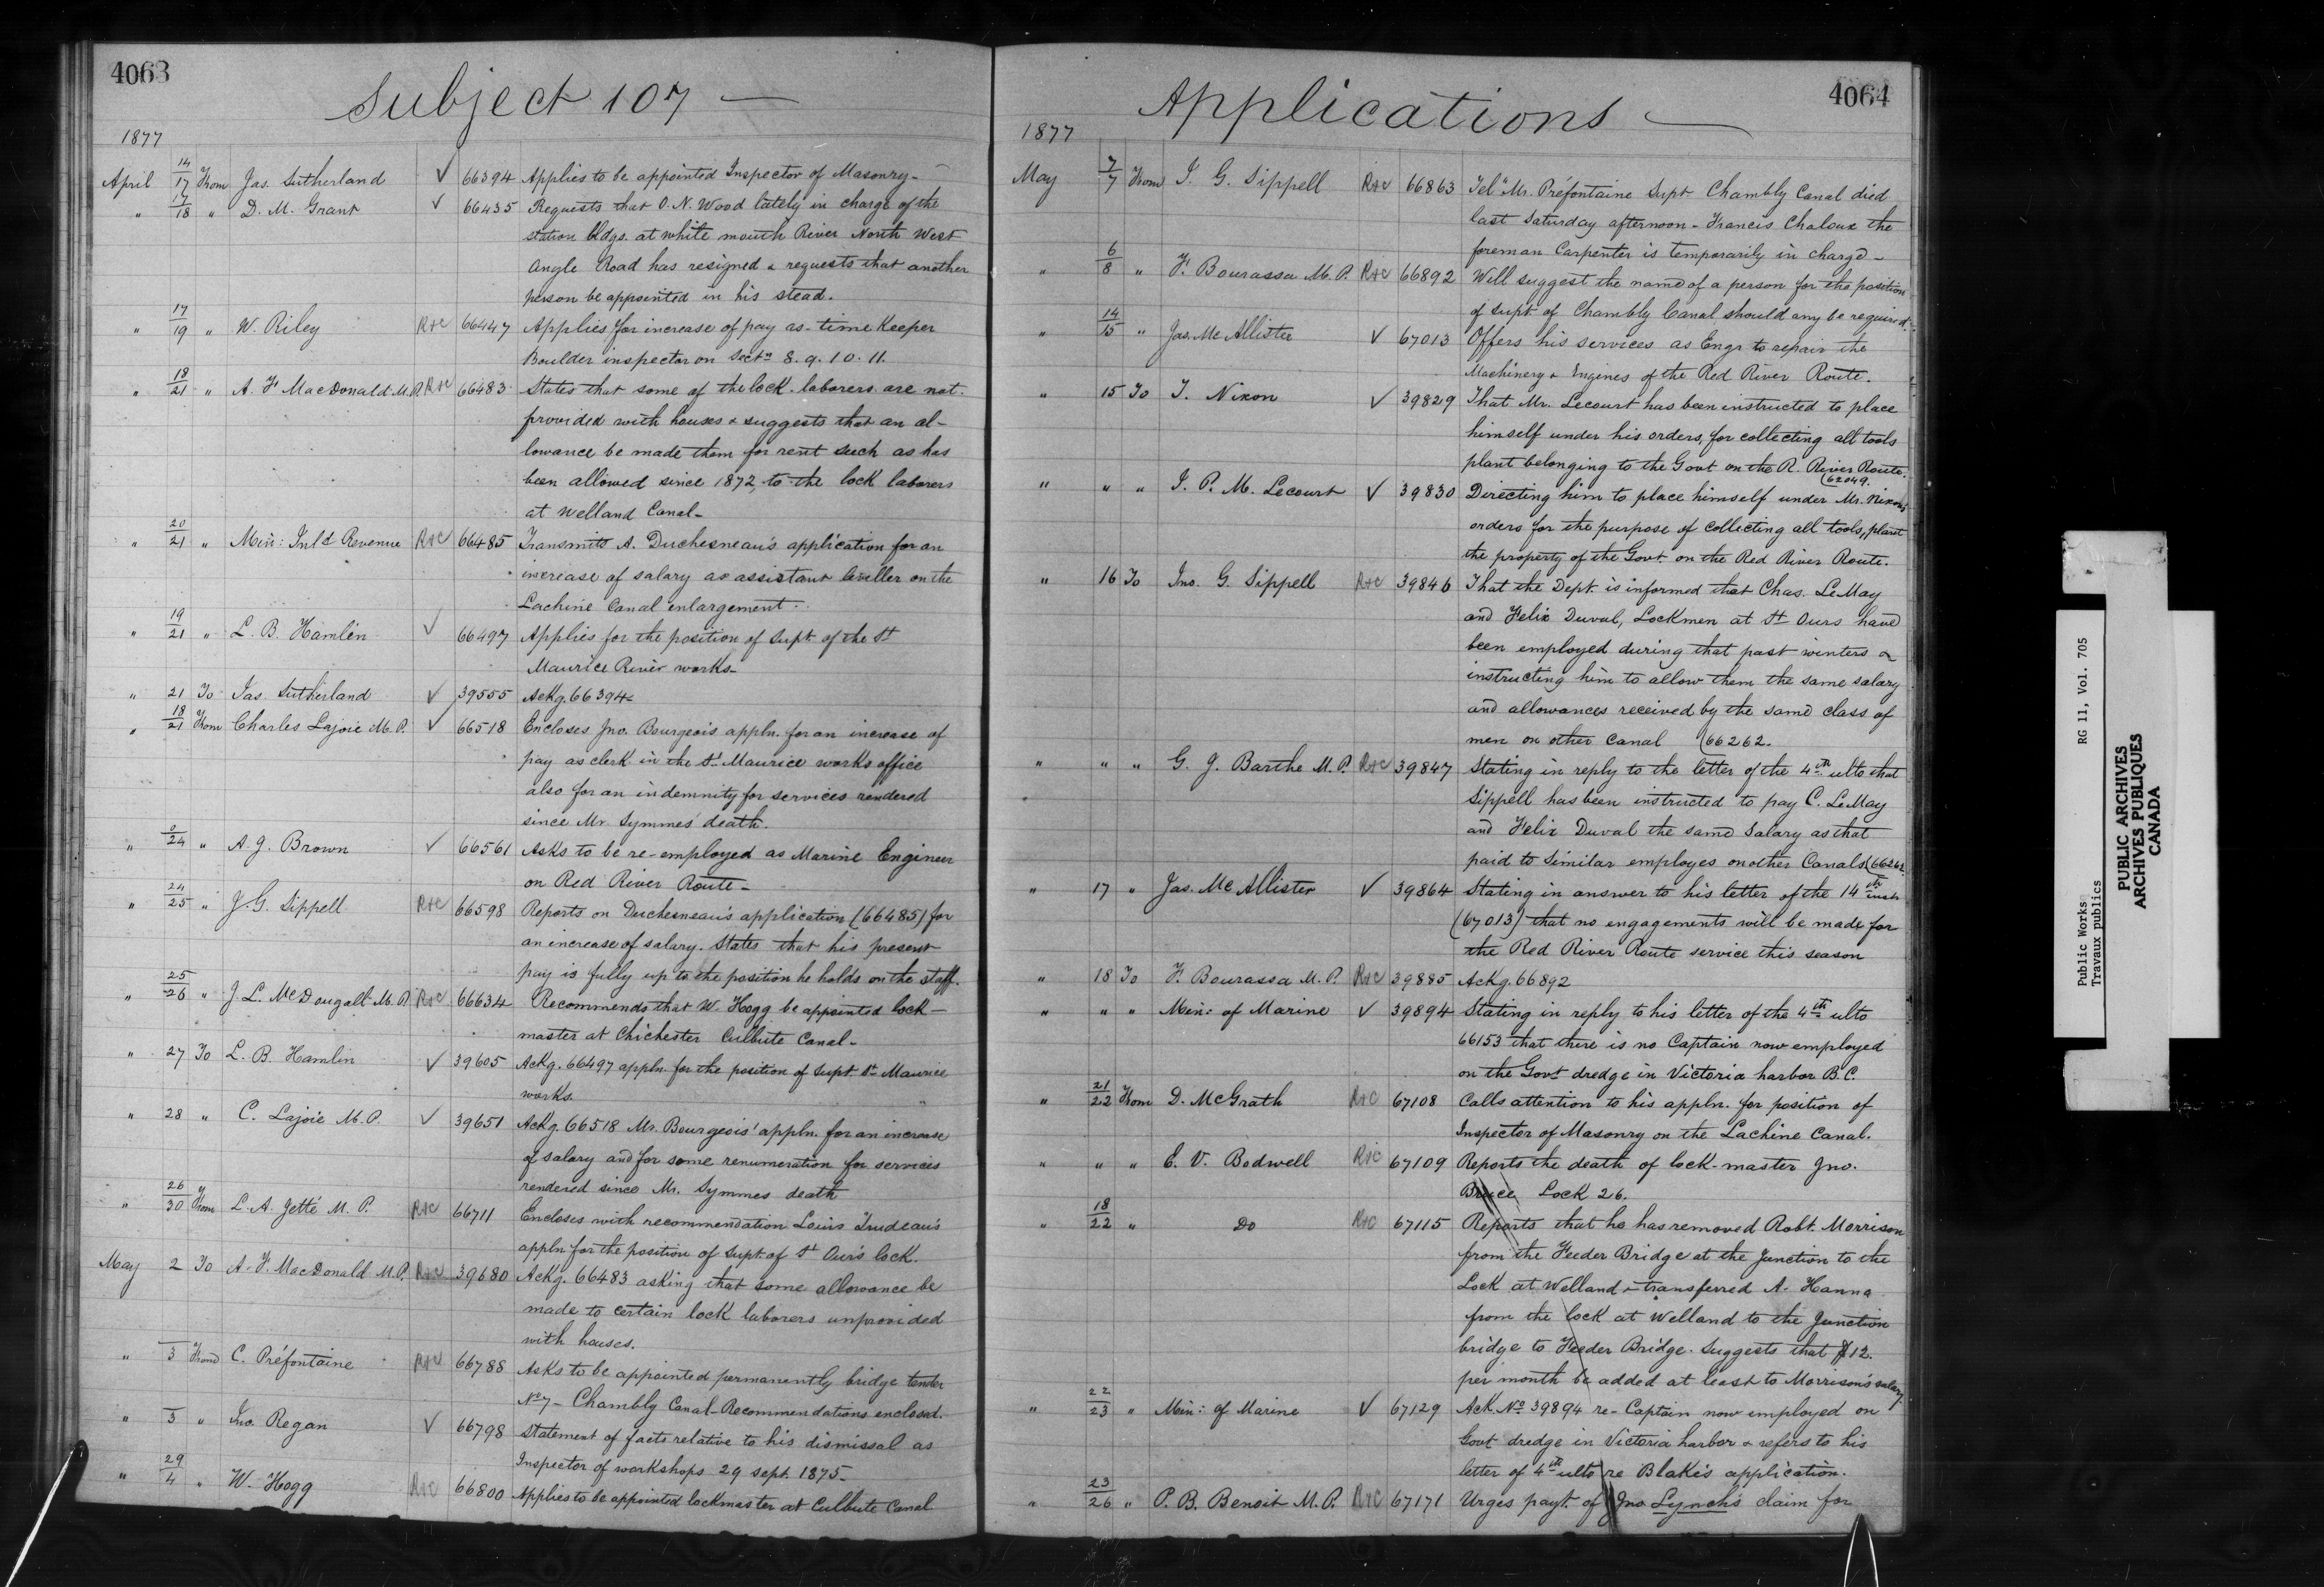 4063
Subject 107 —
1877
April 14/17 From Jas. Sutherland ✓ 66394 Applies to be appointed Inspector of Masonry –
" 17/18 " D. M. Grant ✓ 66435 Requests that O. N. Wood lately in charge of the
station bldgs. at white mouth River North West
Angle Road has resigned & requests that another
person be appointed in his stead.
" 17/19 " W. Riley R&C 66447 Applies for increase of pay as time Keeper
Boulder inspector on Sectn 8. 9. 10. 11.
" 18/21 " A. F. MacDonald M.P. R&C 66483 States that some of the lock laborers are not
provided with houses & suggests that an al-
lowance be made them for rent such as has
been allowed since 1872, to the lock laborers
at Welland Canal –
" 20/21 " Min: Inld Revenue R&C 66485 Transmits A. Duchesneau's application for an
increase of salary as assistant leveller on the
Lachine Canal enlargement.
" 19/21 " L. B. Hamlin ✓ 66497 Applies for the position of Supt of the St
Maurice River works –
" 21 To Jas. Sutherland ✓ 39555 Ackg. 66394
" 18/21 From Charles Lajoie M.P. ✓ 66518 Encloses Jno. Bourgeois appln. for an increase of
pay as clerk in the St Maurice works office
also for an indemnity for services rendered
since Mr. Symmes' death.
" 0/24 " A. J. Brown ✓ 66561 Asks to be re-employed as Marine Engineer
on Red River Route –
" 24/25 " J. G. Sippell R&C 66598 Reports on Duchesneau's application (66485) for
an increase of salary. States that his present
pay is fully up to the position he holds on the staff.
" 25/26 " J L. McDougall M.P. R&C 66634 Recommends that W. Hogg be appointed lock –
master at Chichester Culbute Canal –
" 27 To L. B. Hamlin ✓ 39605 Ackg. 66497 appln. for the position of Supt St Maurice
works.
" 28 " C. Lajoie M.P. ✓ 39651 Ackg. 66518 Mr. Bourgeois' appln. for an increase
of salary and for some renumeration for services
rendered since Mr. Symmes death
" 26/30 From L. A. Jetté M.P. R&C 66711 Encloses with recommendation Louis Trudeau's
appln for the position of Supt. of St Our's lock.
May 2 To A. F. MacDonald M.P. R&C 39680 Ackg. 66483 asking that some allowance be
made to certain lock laborers unprovided
with houses.
" 3 From C. Préfontaine R&C 66788 Asks to be appointed permanently bridge tender
No 7 – Chambly Canal – Recommendations enclosed.
" 3 " Jno. Regan ✓ 66798 Statement of facts relative to his dismissal as
Inspector of workshops 29 sept. 1875 –
" 29/4 " W. Hogg R&C 66800 Applies to be appointed lockmaster at Culbute Canal
4064
Applications —
1877
May 7/7 From J. G. Sippell R&C 66863 Tel" Mr. Préfontaine Supt Chambly Canal died
last Saturday afternoon – Francis Chaloux the
foreman Carpenter is temporarily in charge –
" 6/8 " F. Bourassa M.P. R&C 66892 Will suggest the name of a person for the position
of supt of Chambly Canal should any be required.
" 14/15 " Jas. McAllister ✓ 67013 Offers his services as Engr to repair the
Machinery & Engines of the Red River Route.
" 15 To T. Nixon ✓ 39829 That Mr. Lecourt has been instructed to place
himself under his orders, for collecting all tools
plant belonging to the Govt on the R. River Route.
(62049.
" " " J. P. M. Lecourt ✓ 39830 Directing him to place himself under Mr. Nixon's
orders for the purpose of collecting all tools, plant
the property of the Govt. on the Red River Route.
" 16 To Jno. G. Sippell R&C 39846 That the Dept. is informed that Chas. LeMay
and Felix Duval, Lockmen at St Ours have
been employed during that past winters &
instructing him to allow them the same salary
and allowances received by the same class of
men on other Canal (66262.
" " " G. J. Barthe M.P. R&C 39847 Stating in reply to the letter of the 4th ulto that
Sippell has been instructed to pay C. LeMay
and Felix Duval the same salary as that
paid to similar employes on other Canals (66262
" 17 " Jas. McAllister ✓ 39864 Stating in answer to his letter of the 14th inst
(67013) that no engagements will be made for
the Red River Route service this season
" 18 To F. Bourassa M.P. R&C 39885 Ackg. 66892
" " " Min: of Marine ✓ 39894 Stating in reply to his letter of the 4th ulto
66153 that there is no Captain now employed
on the Govt dredge in Victoria harbor B.C.
" 21/22 From D. McGrath R&C 67108 Calls attention to his appln. for position of
Inspector of Masonry on the Lachine Canal.
" " " E. V. Bodwell R&C 67109 Reports the death of lock-master Jno.
Bruce Lock 26.
" 18/22 " Do R&C 67115 Reports that he has removed Robt. Morrison
from the Feeder Bridge at the Junction to the
Lock at Welland & transferred A. Hanna
from the lock at Welland to the Junction
bridge to Feeder Bridge. Suggests that $12.
per month be added at least to Morrison's salary.
" 22/23 " Min: of Marine ✓ 67129 Ack No 39894 re – Captain now employed on
Govt dredge in Victoria harbor & refers to his
letter of 4th ulto re Blake's application.
" 23/26 " P. B. Benoit M.P. R&C 67171 Urges payt. of Jno Lynch's claim for
Public Works RG 11, Vol. 705
Travaux publics
PUBLIC ARCHIVES
ARCHIVES PUBLIQUES
CANADA